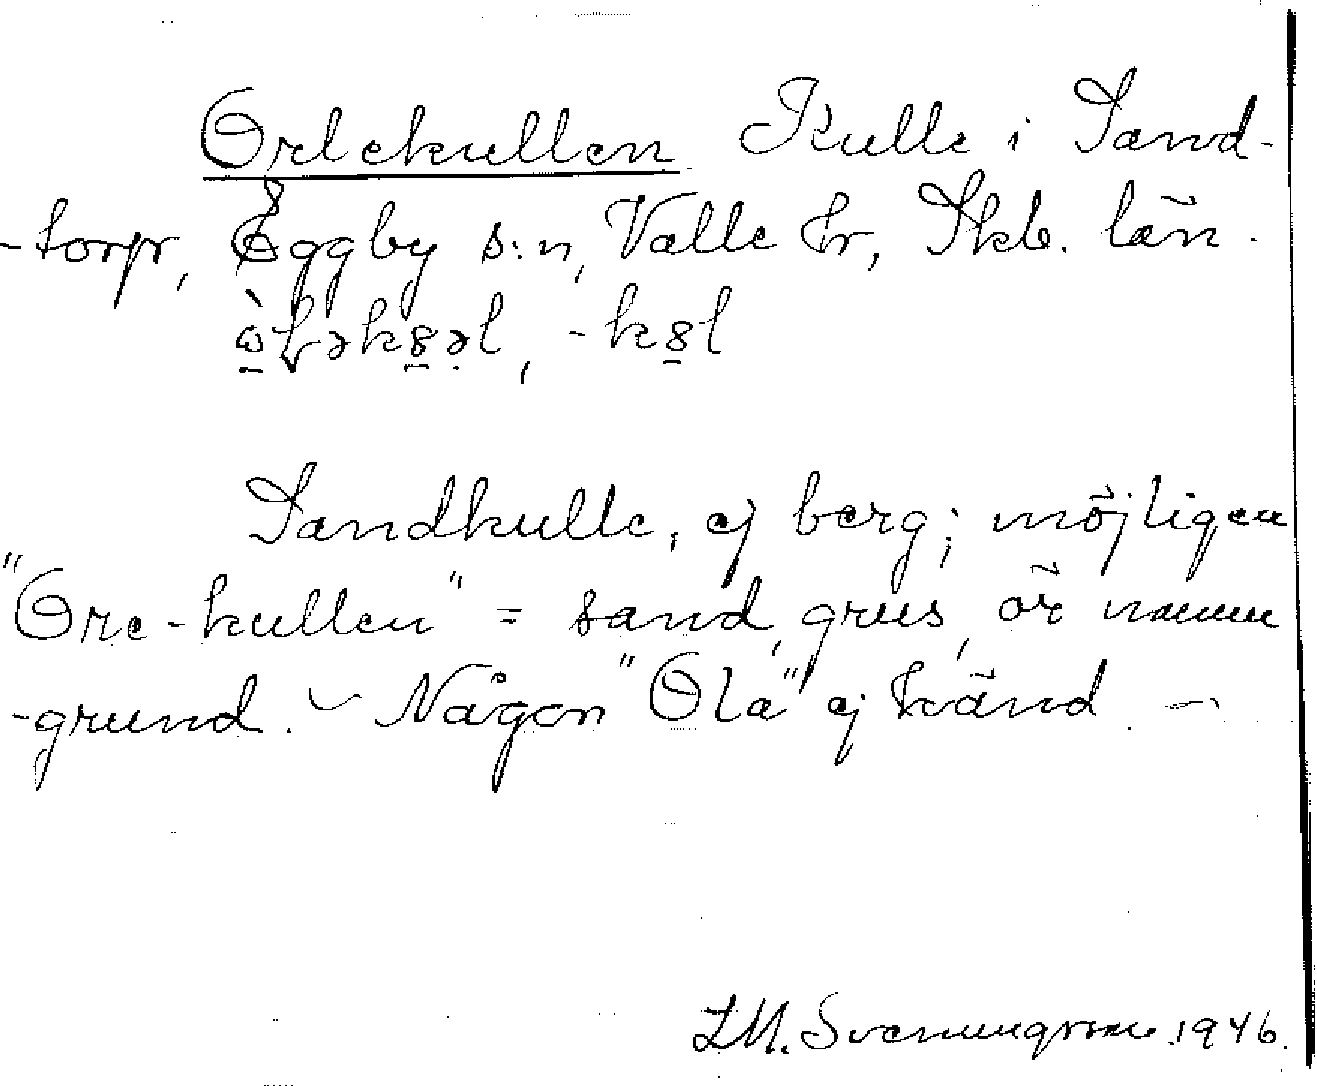 Orlekullen Kulle i Sand-
-torp, Eggby s:n, Valle hr, Skb. län.
Sandkulle, ej berg; möjligen
"Ore-kullen" = sand, grus, ör namn
-grund. — Någon "Ola" ej känd. —
L.M. Svenungsson 1946.